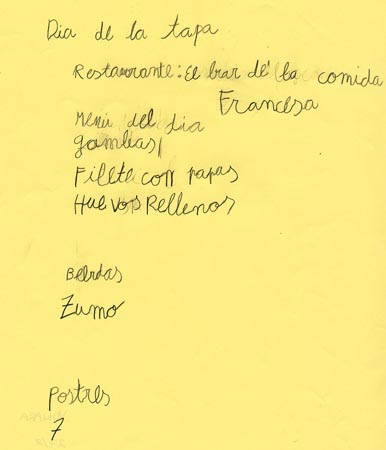 Dia de la tapa
Restaurante: El bar de la comida
Francesa
Menú del dia
gambas
Filete con papas
Huevos Rellenos
Bebidas
Zumo
Postres
7